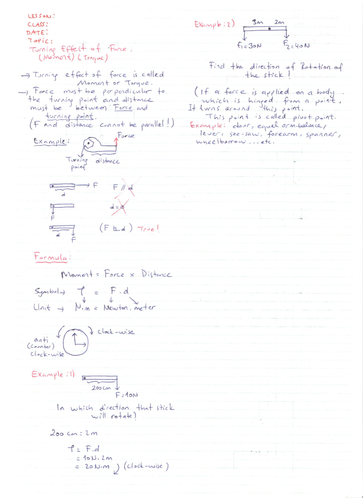 LESSON:
CLASS:
DATE:
TOPIC:
Turning Effect of Force.
(Moment) (Torque)
→ Turning effect of force is called
Moment or Torque.
→ Force must be perpendicular to
the turning point and distance
must be between Force and
turning point.
(F and distance cannot be parallel!)
Example:
Force
Turning point
distance
F
d
F // d
d=0
F
F
d
(F ⊥ d) True!
Formula:
Moment = Force x Distance
Symbol→ τ = F.d
Unit → N.m = Newton.meter
Clock-wise
Anti
(Counter)
Clock-wise
Example:1)
200cm
F=10N
In which direction that stick
will rotate?
200 cm: 2m
τ = F.d
= 10N.2m
= 20N.m (Clock-wise)
Example:2)
3m 2m
F1=30N
F2=40N
Find the direction of Rotation of
the stick!
(If a force is applied on a body
which is hinged from a point.
It turns around this point.
This point is called pivot point.
Example: door, equal arm-balance,
lever, see-saw, forearm, spanner,
wheelbarrow... etc.